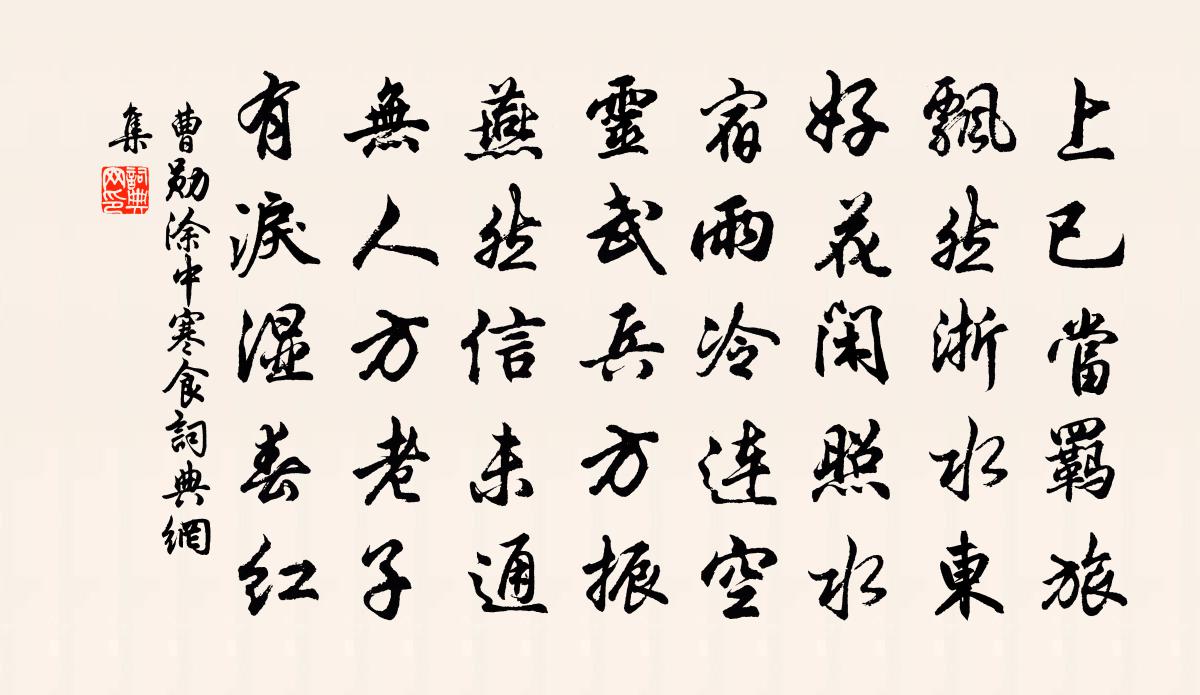 上巳當羈旅
飄然浙水東
好花閑照水
宿雨冷连空
靈武兵方振
燕然信未通
無人方老子
有淚濕春红
曹勛涂中寒食詞典網
集
詞典網印